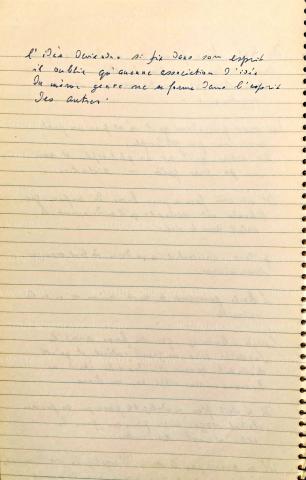 l'idée devienne si fix dans son esprit
il oublie qu'aucune association d'idée
du même genre ne se forme dans l'esprit
des autres.